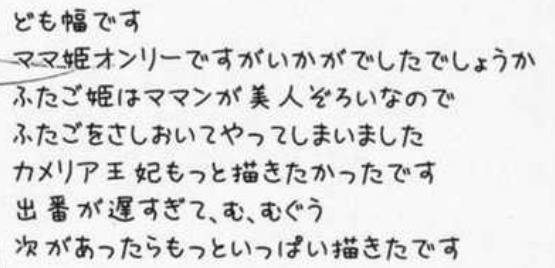 ども幅です
ママ姫オンリーですがいかがでしたでしょうか
ふたご姫はママンが美人ぞろいなので
ふたごをさしおいてやってしまいました
カメリア王妃もっと描きたかったです
出番が遅すぎて、む、むぐう
次があったらもっといっぱい描きたです